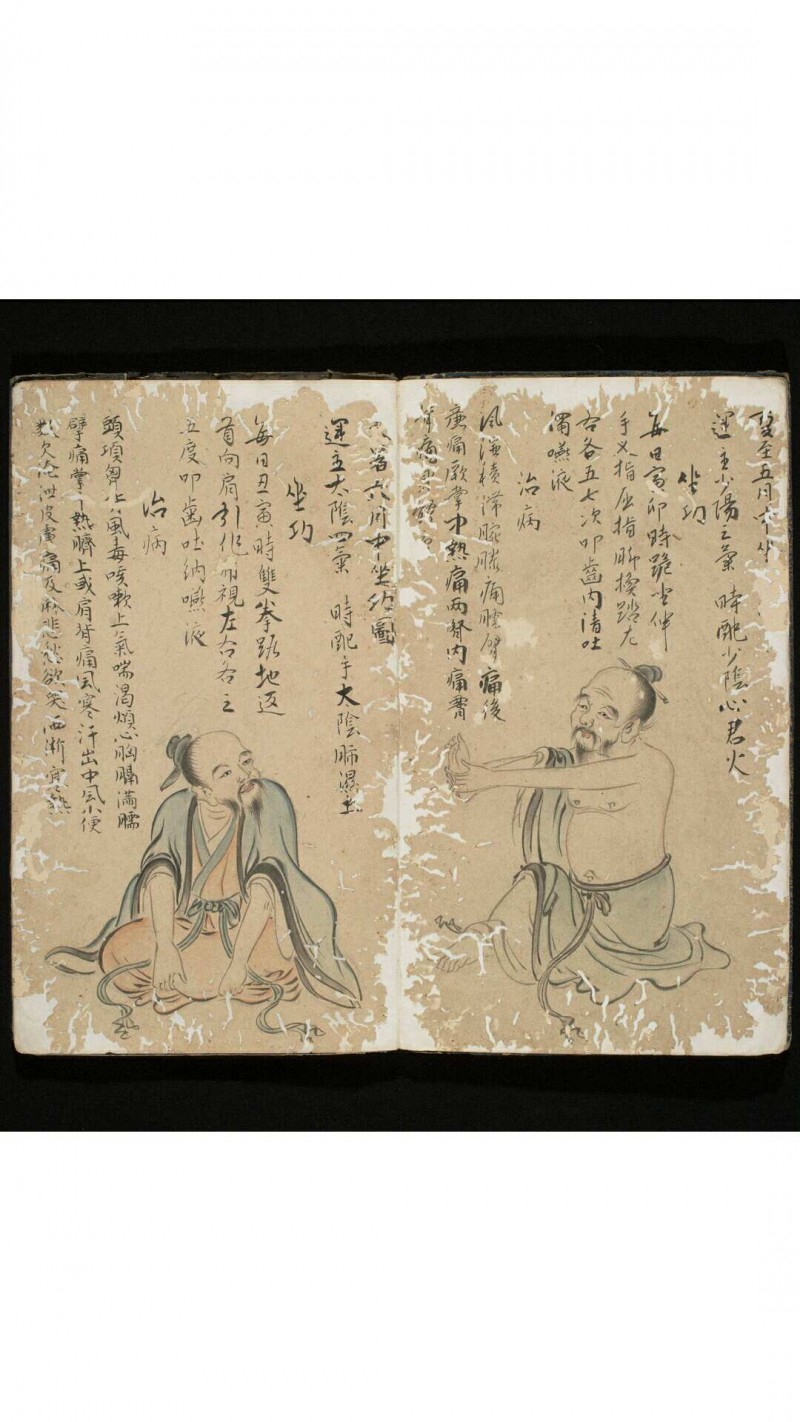 夏至五月中坐
運主少陽三氣 時配少陰心君火
坐功
每日寅卯時跪坐伸
手叉指屈指脚換踏左
右各五七次叩齒內清吐
濁嚥液
治病
風濕積滯腕膝痛臑臂痛後
廉痛厥掌中熱痛兩腎內痛腰
背痛
大暑六月中坐功圖
運主太陰四氣 時配手太陰肺濕土
坐功
每日丑寅時雙拳踞地返
首向肩引作虎視左右各三
五度叩齒吐納嚥液
治病
頭項胷背風毒咳嗽上氣喘渴煩心胸膈滿臑
臂痛掌中熱臍上或肩背痛風寒汗出中風小便
數欠淹泄皮膚痛及麻悲愁欲哭洒淅寒熱